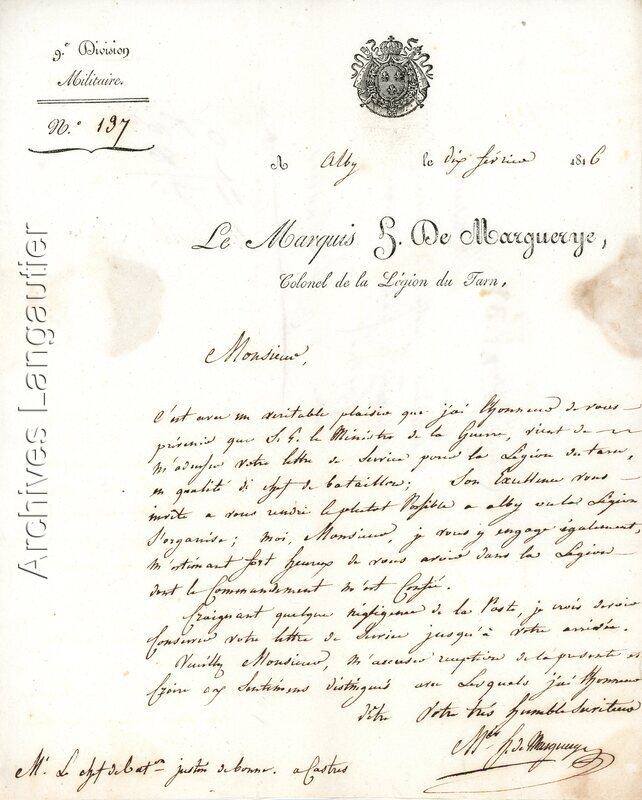 9.e Division
Militaire.
N.o 197
A Alby le dix février 1816
Le Marquis H. De Marguerye,
Colonel de la Légion du Tarn,
Monsieur,
C'est avec un veritable plaisir que j'ai l'honneur de vous
prévenir que S. E. le Ministre de la Guerre, vient de
m'adresser votre lettre de Service pour la Légion du tarn,
en qualité de chef de bataillon; Son Excellence vous
invite a vous rendre le plutot Possible a alby ou la Légion
S'organise; moi, Monsieur, je vous y engage également,
m'estimant fort heureux de vous avoir dans la Légion
dont le Commandement m'est Confié.
Craignant quelque négligence de la Poste, je crois devoir
Conserver votre lettre de Service jusqu'à votre arrivée.
Veuillez Monsieur, m'accuser reception de la presente et
Croire aux Sentimens distingués avec Lesquels j'ai l'honneur
d'être Votre très humble Serviteur
M.is H. de Marguerye
Mr. Le chef de bat.on justin de bonne. a Castres
Archives Langautier